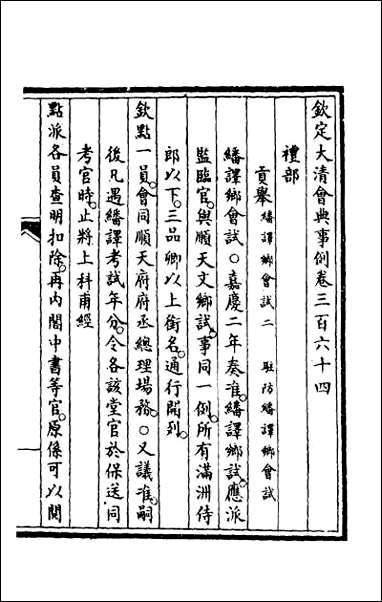 欽定大清會典事例卷三百六十四
禮部
貢舉繙譯鄉會試二 駐防繙譯鄉會試
繙譯鄉會試○嘉慶二年奏准。繙譯鄉試。應派
監臨官。與順天文鄉試。事同一例。所有滿洲侍
郎以下。三品卿以上銜名。通行開列。
欽點一員。會同順天府府丞總理場務。○又議准。嗣
後凡遇繙譯考試年分。令各該堂官於保送同
考官時。止將上科甫經
點派各員查明扣除。再內閣中書等官。原係可以閱